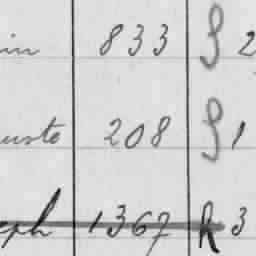 in 833 S 2
usto 208 S 1
eph 1367 R 3